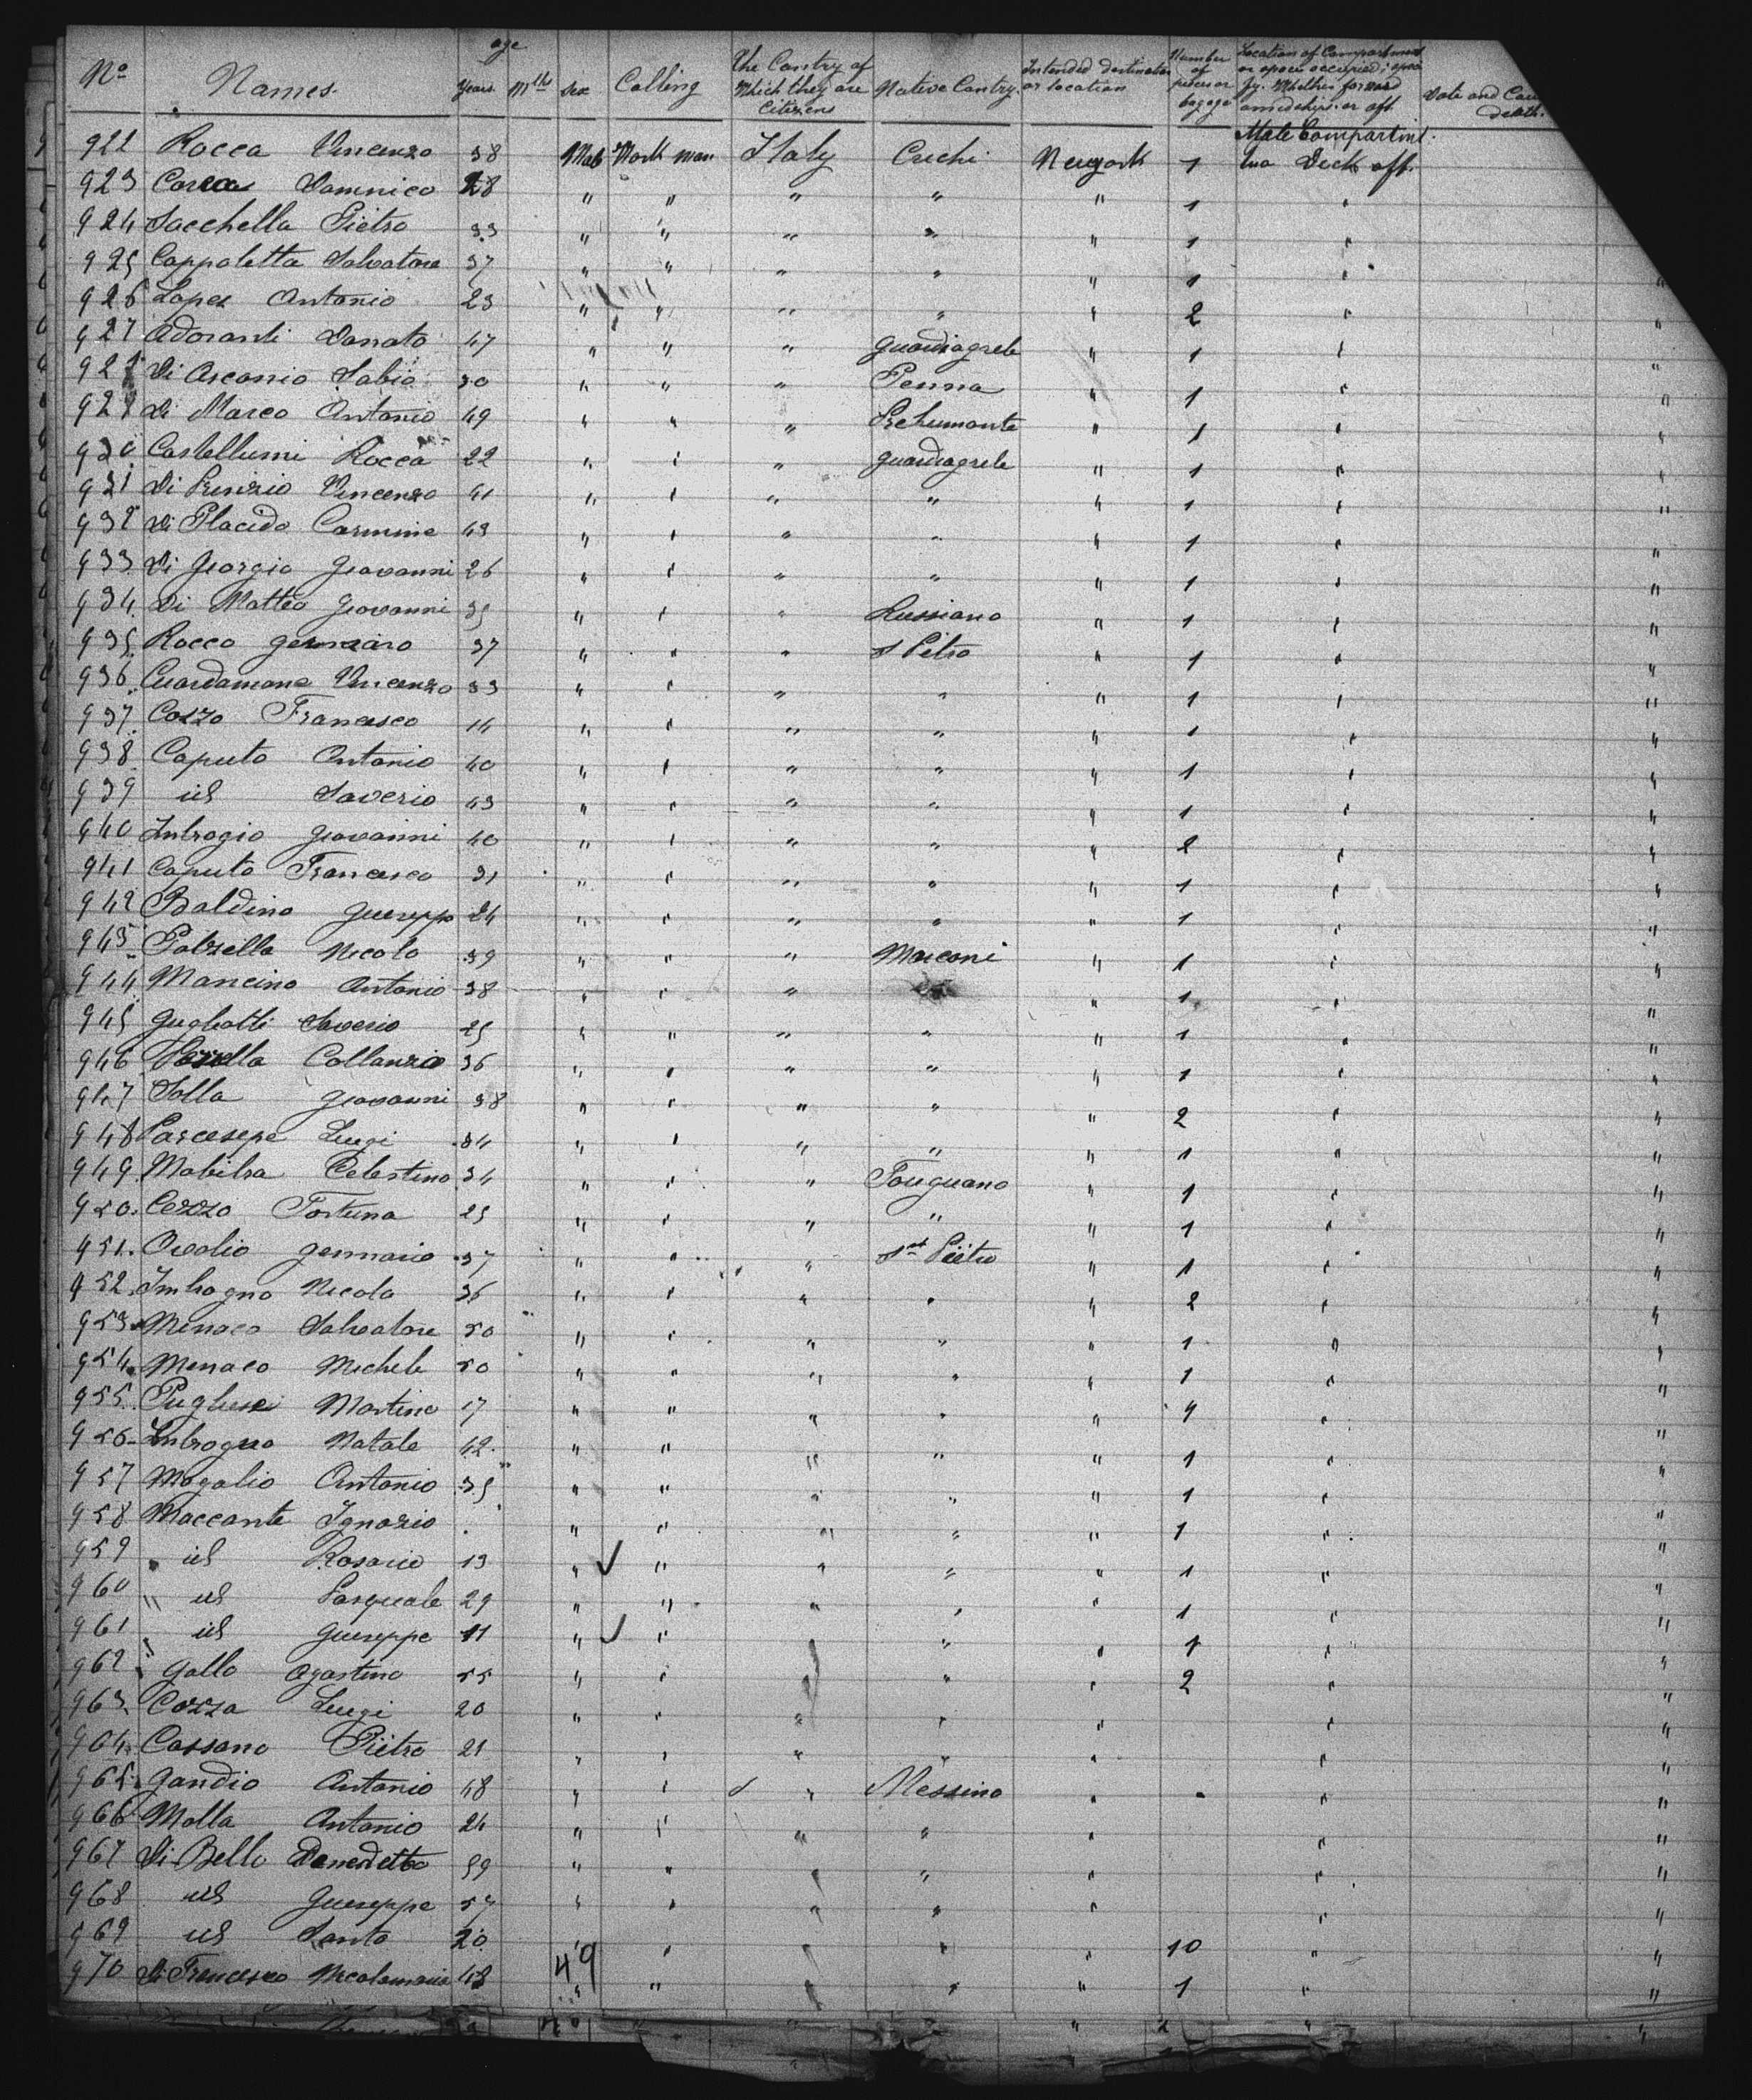 No Names. age Years. Mths Sex Calling The Contry of Which they are Citizens Native Contry. Intended destination or location Number of pieces or bagage Location of Compartment or space occupied; Whether forward amidships or aft. Date and Cau death.
Male Compartint.
922 Rocca Vincenzo 38 Male Work man Italy Cuchi Newyork 1 two Deck aft.
923 Damnico 28 " " " " " 1 "
924 Sacchella Pietro 33 " " " " " 1 "
925 Cappaletta Salvatore 37 " " " " " 1 " "
926 Lapes Antonio 23 " " " " " 2 " "
927 Adoranti Donato 47 " " " guardiagrele " 1 " "
928 Di Ascanio Sabio 30 " " " Penna " 1 " "
929 di Marco Antonio 49 " " " " 1 " "
930 Castellumi Rocca 22 " " " guardiagrele " 1 " "
931 Di Vincenzo 41 " " " " " 1 " "
932 Di Placido Carmine 43 " " " " " 1 " "
933 Di Georgio Geovanni 26 " " " " " 1 " "
934 Di Matteo Geovanni 35 " " " Russiano " 1 " "
935 Rocco gennaro 37 " " " S Petro " 1 " "
936 Cuardamone Vincenzo 33 " " " " " 1 " "
937 Cozzo Francesco 14 " " " " " 1 " "
938 Caputo Antonio 40 " " " " " 1 " "
939 id Saverio 43 " " " " " 1 " "
940 Inbrogio Geovanni 40 " " " " " 2 " "
941 Caputo Francesco 31 " " " " " 1 " "
942 Baldino Gueseppe 24 " " " " " 1 " "
943 Palzella Nicola 39 " " " Marconi " 1 " "
944 Mancino Antonio 38 " " " " 1 " "
945 Gugliotti Saverio 25 " " " " " 1 " "
946 Collanzio 36 " " " " " 1 " "
947 Solla Geovanni 38 " " " " " 2 " "
948 Parcesepe Luigi 34 " " " " " 1 " "
949 Mabilia Celestino 34 " " " Touguano " 1 " "
950. Cerzo Fortuna 25 " " " " " 1 " "
951. Ovalio gennaro 37 " " " St Piëtro " 1 " "
952. Imbrogno Nicola 36 " " " " " 2 " "
953 Menaco Salvatore 50 " " " " " 1 " "
954 Menaco Michele 50 " " " " " 1 " "
955 Pugliese Martino 17 " " " " " 1 " "
956 Inbrogno Natale 42 " " " " " 1 " "
957 Magalio Antonio 35 " " " " " 1 " "
958 Maccante Ignazio " " " " " 1 " "
959 id Rosario 13 " " " " " 1 " "
960 " id Pasquale 29 " " " " " 1 " "
961 " id Gueseppe 11 " " " " " 1 " "
962 Gallo Agostino 55 " " " " " 2 " "
963 Cozza Luigi 20 " " " " " " "
964 Cassano Piëtro 21 " " " " " " "
965 Gandio Antonio 48 " " " Messina " " "
966 Molla Antonio 24 " " " " " " "
967 Di Bello Benedetto 59 " " " " " " "
968 id Gueseppe 57 " " " " " " "
969 id Santo 20 " " " " " 10 " "
970 Di Francesco Nicolamaria 48 49 " " " " " 1 " "